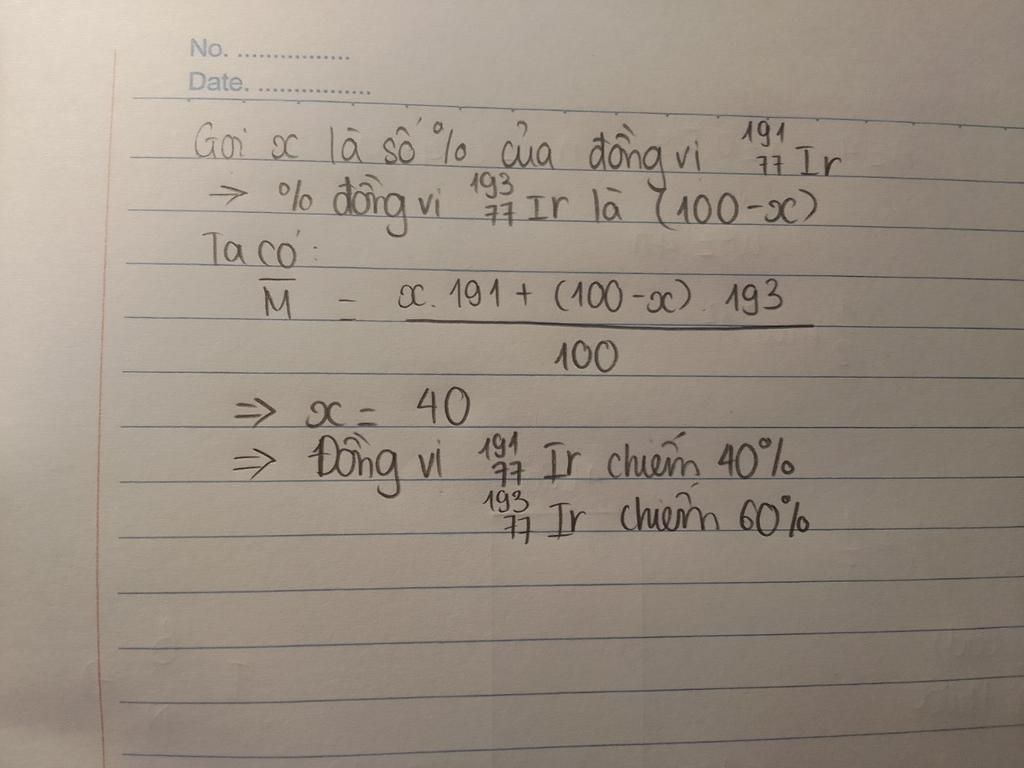 No. ................
Date. ................
Gọi x là số % của đồng vị ¹⁹¹₇₇Ir
→ % đồng vị ¹⁹³₇₇Ir là (100-x)
Ta có:
M̅ = x. 191 + (100-x). 193
100
⇒ x = 40
⇒ Đồng vị ¹⁹¹₇₇Ir chiếm 40%
¹⁹³₇₇Ir chiếm 60%